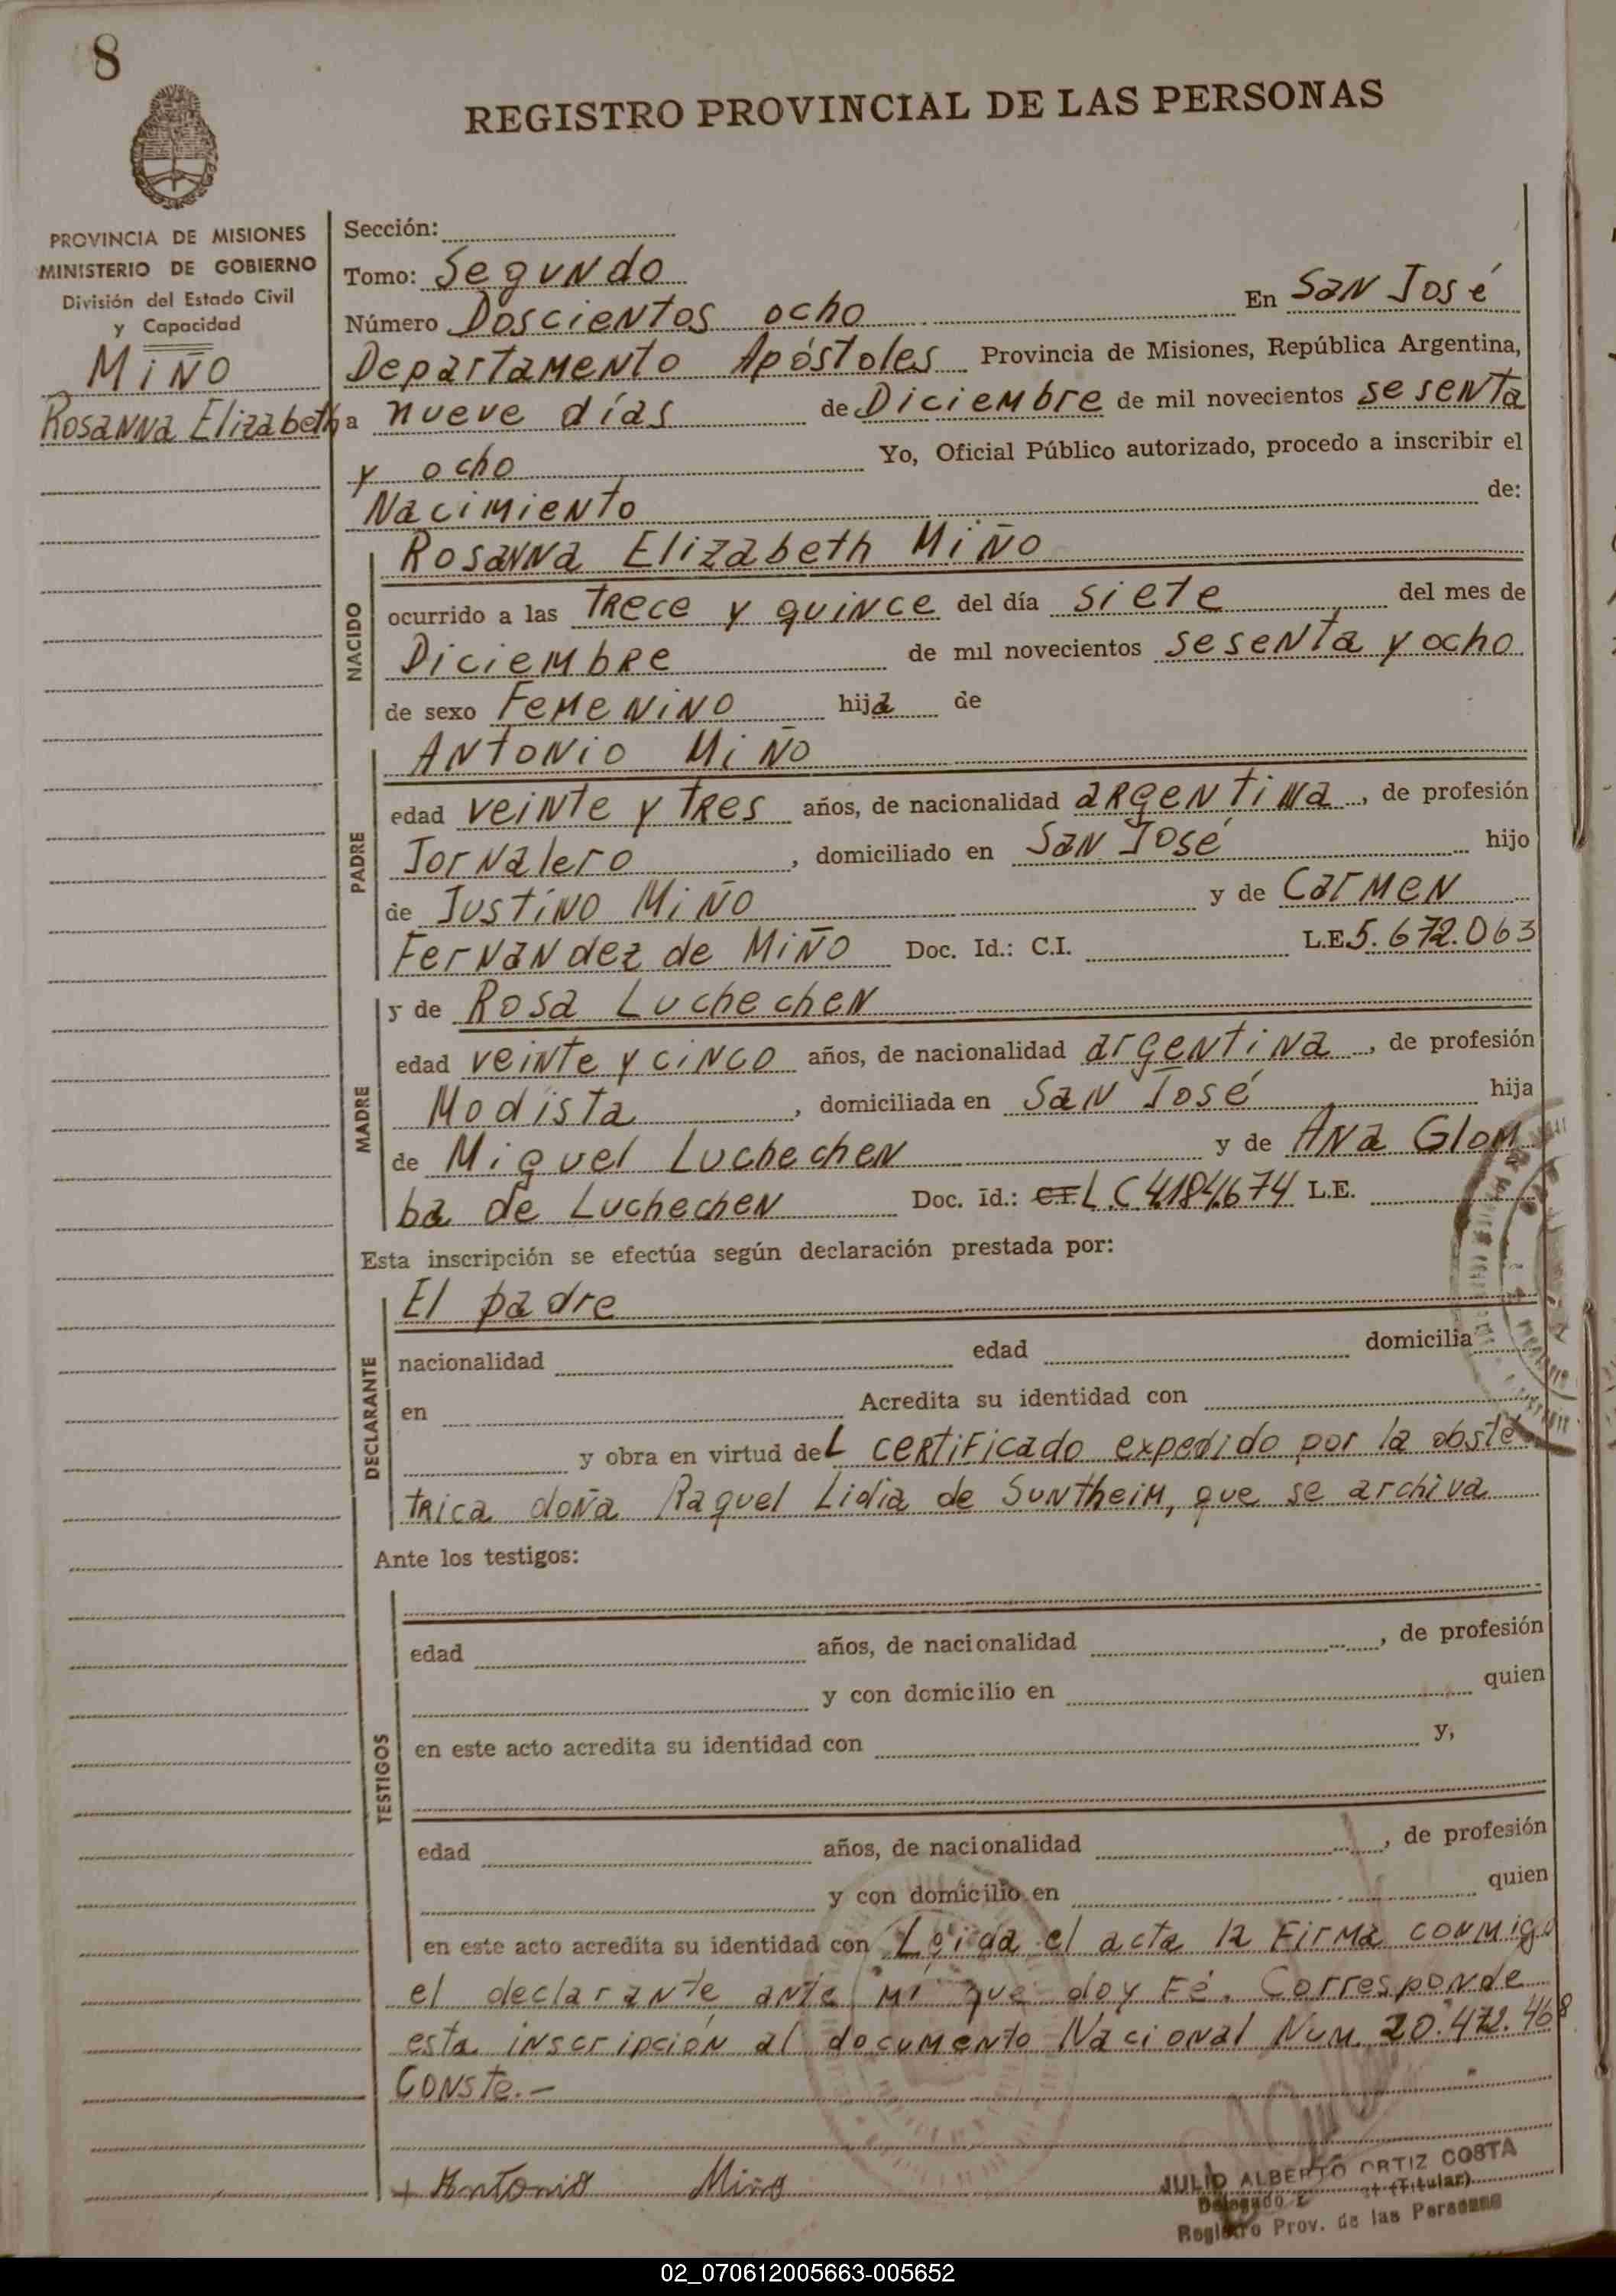 8
REGISTRO PROVINCIAL DE LAS PERSONAS
PROVINCIA DE MISIONES
MINISTERIO DE GOBIERNO
División del Estado Civil
y Capacidad
MiÑO
Rosanna Elizabeth
Sección:
Tomo: Segundo
Número Doscientos ocho En San José
Departamento Apóstoles Provincia de Misiones, República Argentina,
a nueve días de Diciembre de mil novecientos sesenta
y ocho Yo, Oficial Público autorizado, procedo a inscribir el
Nacimiento de:
NACIDO
Rosanna Elizabeth Miño
ocurrido a las Trece y quince del día siete del mes de
Diciembre de mil novecientos sesenta y ocho
de sexo Femenino hija de
PADRE
Antonio Miño
edad veinte y tres años, de nacionalidad argentina, de profesión
Jornalero, domiciliado en San José hijo
de Justino Miño y de Carmen
Fernandez de Miño Doc. Id.: C.I. L.E. 5.672.063
MADRE
y de Rosa Luchechen
edad veinte y cinco años, de nacionalidad argentina, de profesión
Modista, domiciliada en San José hija
de Miguel Luchechen y de Ana Glom
ba de Luchechen Doc. id.: C.I. L.C. 4.184.674 L.E.
Esta inscripción se efectúa según declaración prestada por:
DECLARANTE
El padre
nacionalidad edad domicilia
en Acredita su identidad con
y obra en virtud del certificado expedido por la obsté
trica doña Raquel Lidia de Suntheim, que se archiva
Ante los testigos:
TESTIGOS
edad años, de nacionalidad, de profesión
y con domicilio en quien
en este acto acredita su identidad con y,
edad años, de nacionalidad, de profesión
y con domicilio en quien
en este acto acredita su identidad con Leida el acta la firma conmigo
el declarante ante mi que doy Fé. Corresponde
esta inscripción al documento Nacional Num. 20.472.468
Conste.-
Antonio Miño
JULIO ALBERTO ORTIZ COSTA
Delegado (Titular)
Registro Prov. de las Personas
02_070612005663-005652